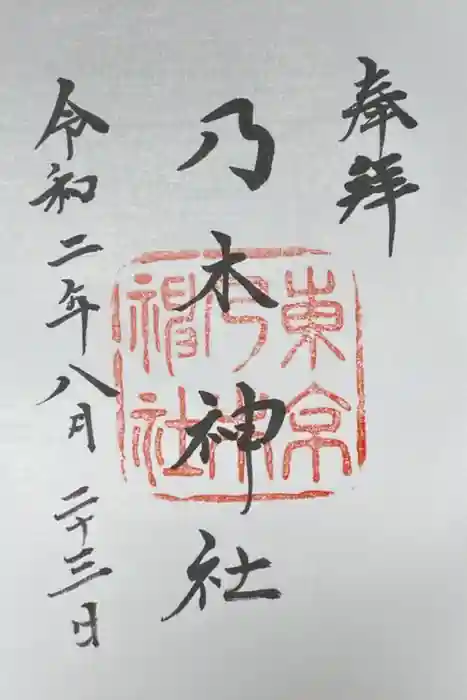 奉拝
東京
乃木
神社
乃木神社
令和二年八月二十三日